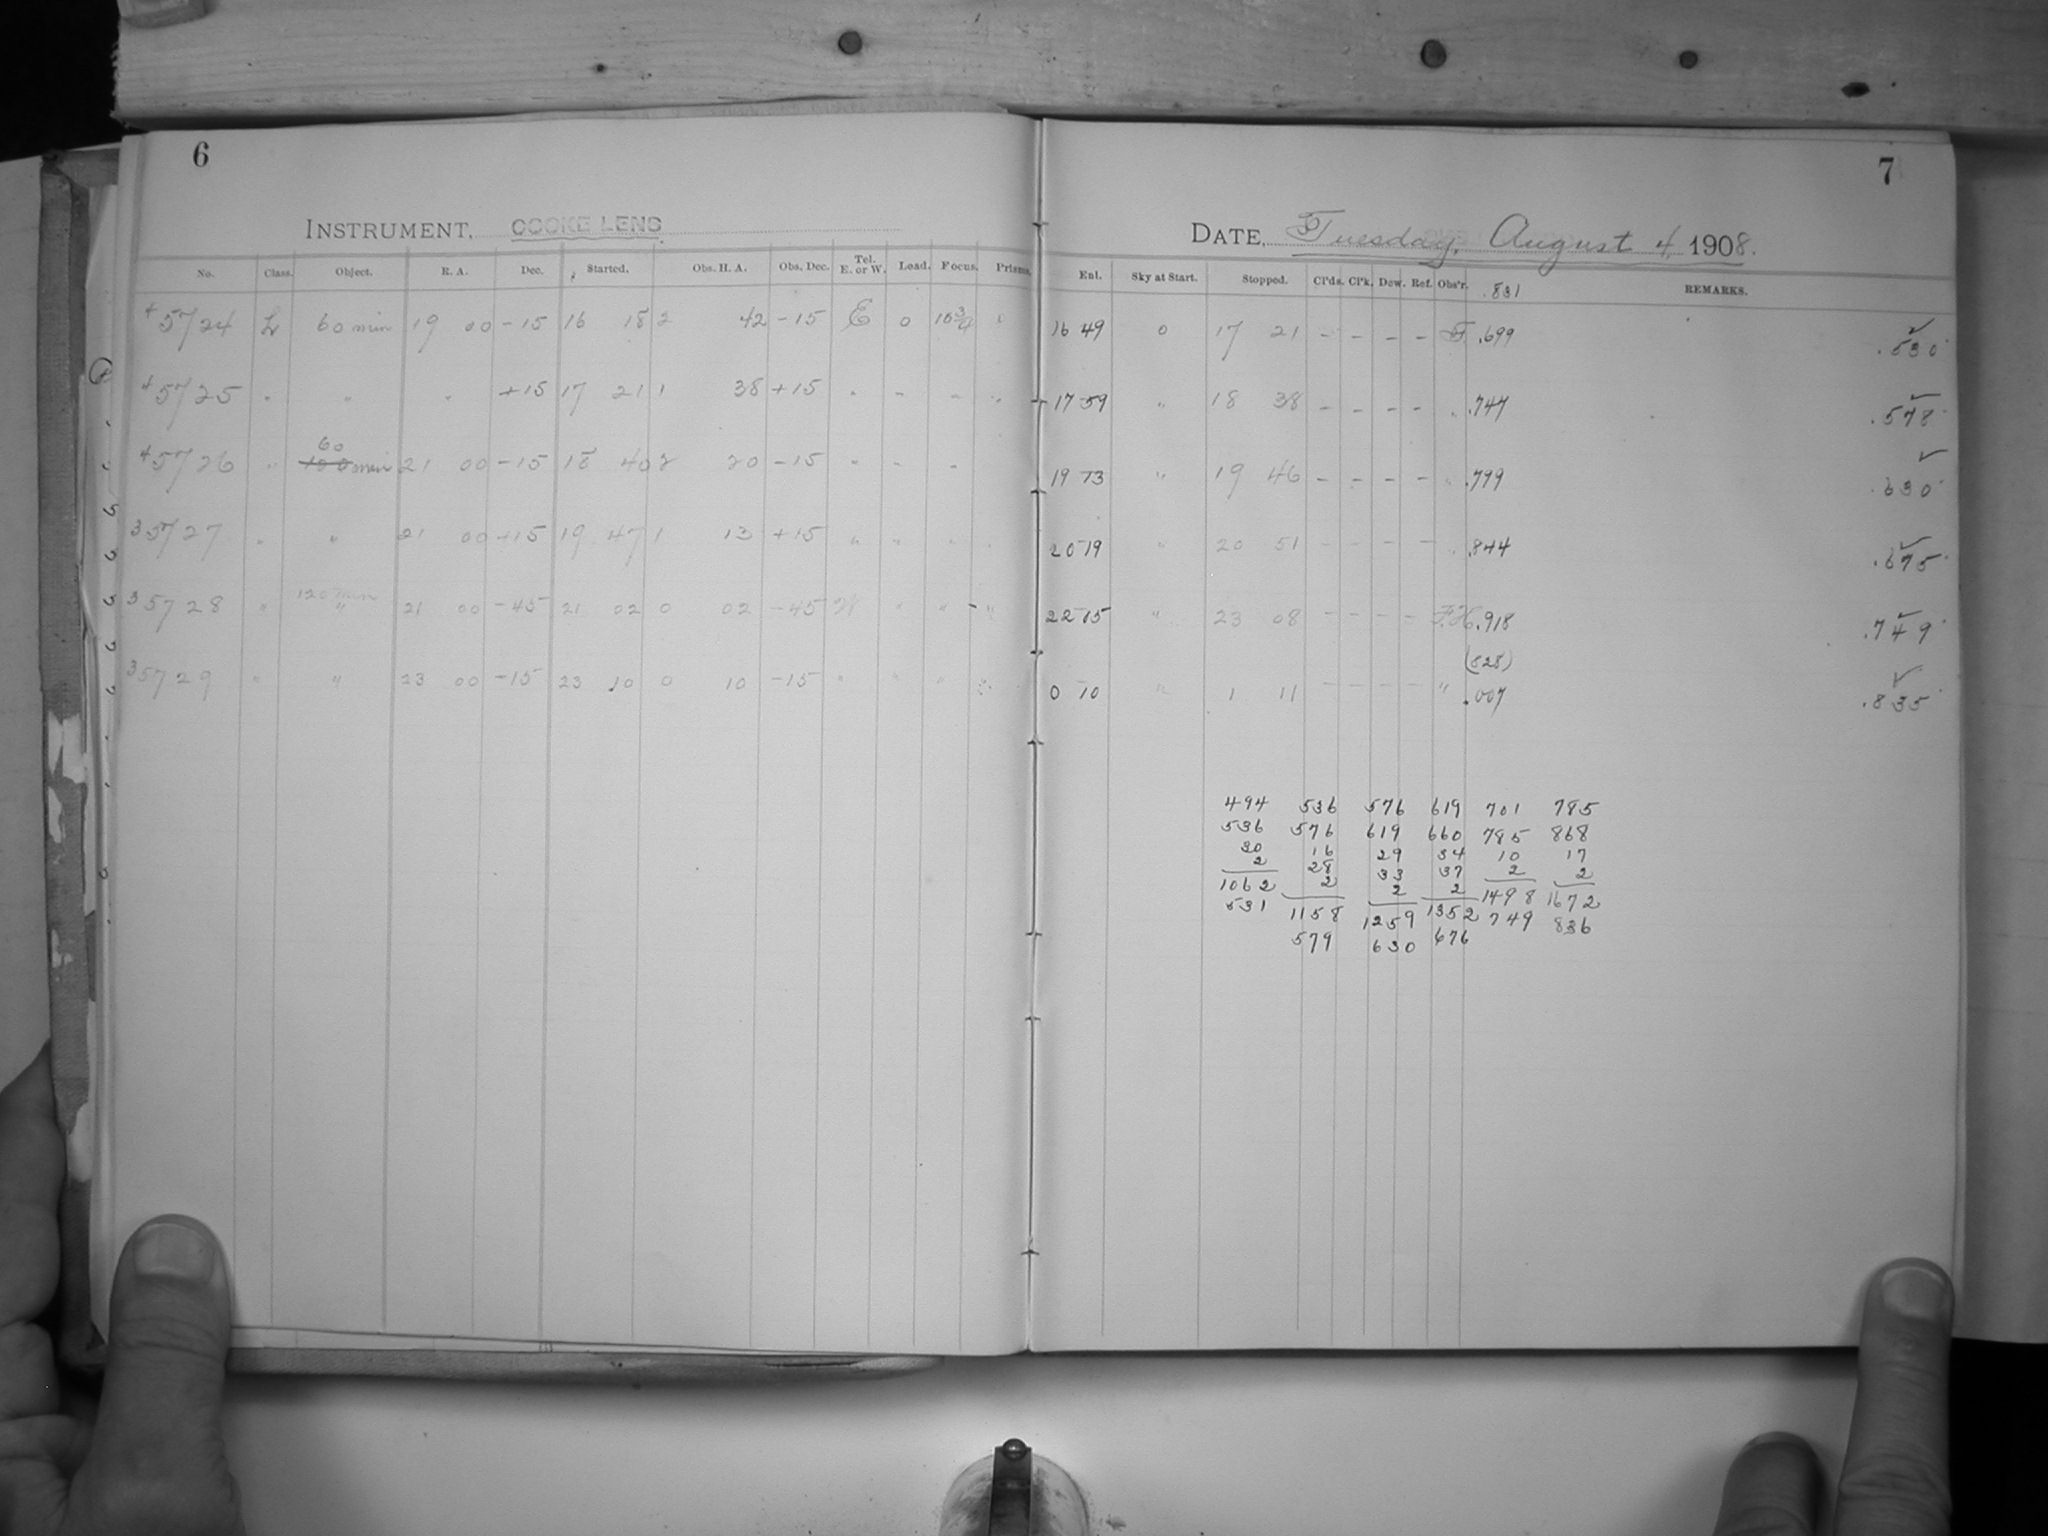 6
INSTRUMENT, COOKE LENS
No. Class. Object. R. A. Dec. Started. Obs. H. A. Obs. Dec. Tel. E. or W. Lead. Focus. Prisms.
45724 L 60 min 19 00 -15 16 18 2 42 -15 E 0 10 3/4 0
45725 " " " +15 17 21 1 38 +15 " " " "
45726 " 60 min 21 00 -15 18 40 2 20 -15 " " "
35727 " " 21 00 +15 19 47 1 13 +15 " " "
35728 " 120 min 21 00 -45 21 02 0 02 -45 W " " "
35729 " " 23 00 -15 23 10 0 10 -15 " " " "
7
DATE, Tuesday, August 4, 1908.
Enl. Sky at Start. Stopped. Cl'ds. Cl'k. Dew. Ref. Obs'r. .831 REMARKS.
16 49 0 17 21 - - - - .699 .530
17 59 " 18 38 - - - - " .747 .578
19 13 " 19 46 - - - - " .799 .630
20 19 " 20 51 - - - - " .844 .675
22 15 " 23 08 - - - - F.H. .918 .749
(828)
0 10 " 1 11 - - - - " .007 .835
494 536 576 619 701 785
536 576 619 660 785 868
30 16 29 34 10 17
2 28 33 37 2 2
2 2 2
1062 1158 1259 1352 1498 1672
531 579 630 676 749 836